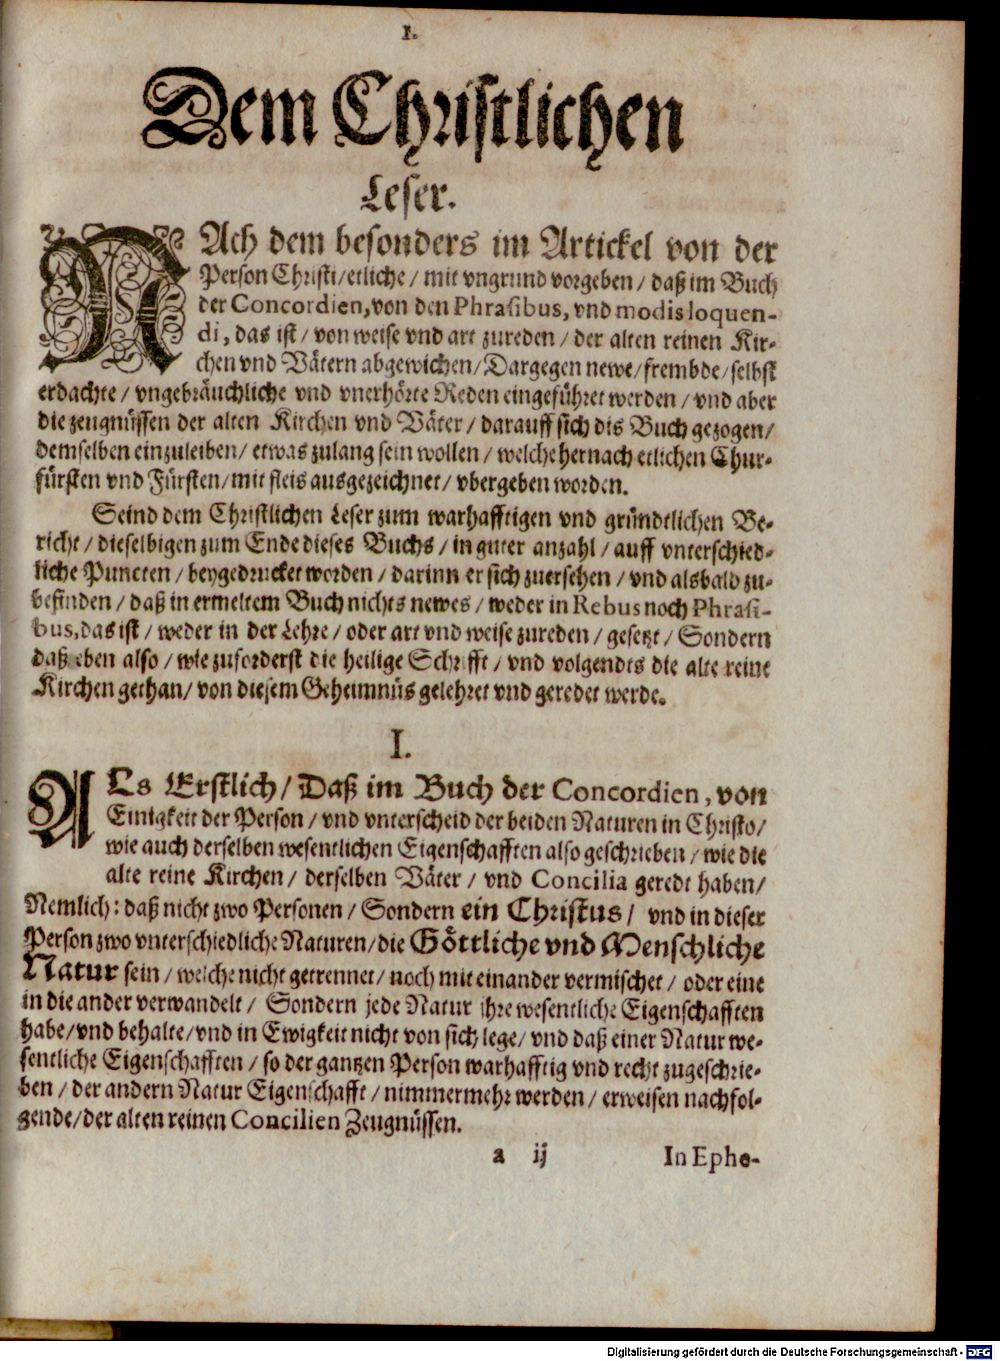 I.
Dem Christlichen
Leser.
NAch dem besonders im Artickel von der
Person Christi/etliche/ mit vngrund vorgeben/ daß im Buch
der Concordien, von den Phrasibus, vnd modis loquen-
di, das ist/ von weise vnd art zureden/ der alten reinen Kir-
chen vnd Vätern abgewichen/ Dargegen newe/ frembde/ selbst
erdachte/ vngebräuchliche vnd vnerhörte Reden eingeführet werden/ vnd aber
die zeugnüssen der alten Kirchen vnd Väter/ darauff sich dis Buch gezogen/
demselben einzuleiben/ etwas zulang sein wollen/ welche hernach etlichen Chur-
fürsten vnd Fürsten/ mit fleis ausgezeichnet/ vbergeben worden.
Seind dem Christlichen Leser zum warhafftigen vnd gründtlichen Be-
richt/ dieselbigen zum Ende dieses Buchs/ in guter anzahl/ auff vnterschied-
liche Puncten/ beygedrucket worden/ darinn er sich zuersehen/ vnd alsbald zu-
befinden/ daß in ermeltem Buch nichts newes/ weder in Rebus noch Phrasi-
bus, das ist/ weder in der Lehre/ oder art vnd weise zureden/ gesetzt/ Sondern
daß eben also/ wie zuforderst die heilige Schrifft/ vnd volgendts die alte reine
Kirchen gethan/ von diesem Geheimnüs gelehret vnd geredet werde.
I.
ALs Erstlich/ Daß im Buch der Concordien, von
Einigkeit der Person/ vnd vnterscheid der beiden Naturen in Christo/
wie auch derselben wesentlichen Eigenschafften also geschrieben/ wie die
alte reine Kirchen/ derselben Väter/ vnd Concilia geredt haben/
Nemlich: daß nicht zwo Personen/ Sondern ein Christus/ vnd in dieser
Person zwo vnterschiedliche Naturen/ die Göttliche vnd Menschliche
Natur sein/ welche nicht getrennet/ noch mit einander vermischet/ oder eine
in die ander verwandelt/ Sondern jede Natur ihre wesentliche Eigenschafften
habe/ vnd behalte/ vnd in Ewigkeit nicht von sich lege/ vnd daß einer Natur we-
sentliche Eigenschafften/ so der gantzen Person warhafftig vnd recht zugeschrie-
ben/ der andern Natur Eigenschafft/ nimmermehr werden/ erweisen nachfol-
gende/ der alten reinen Concilien Zeugnüssen.
a ij In Ephe-
Digitalisierung gefördert durch die Deutsche Forschungsgemeinschaft - DFG